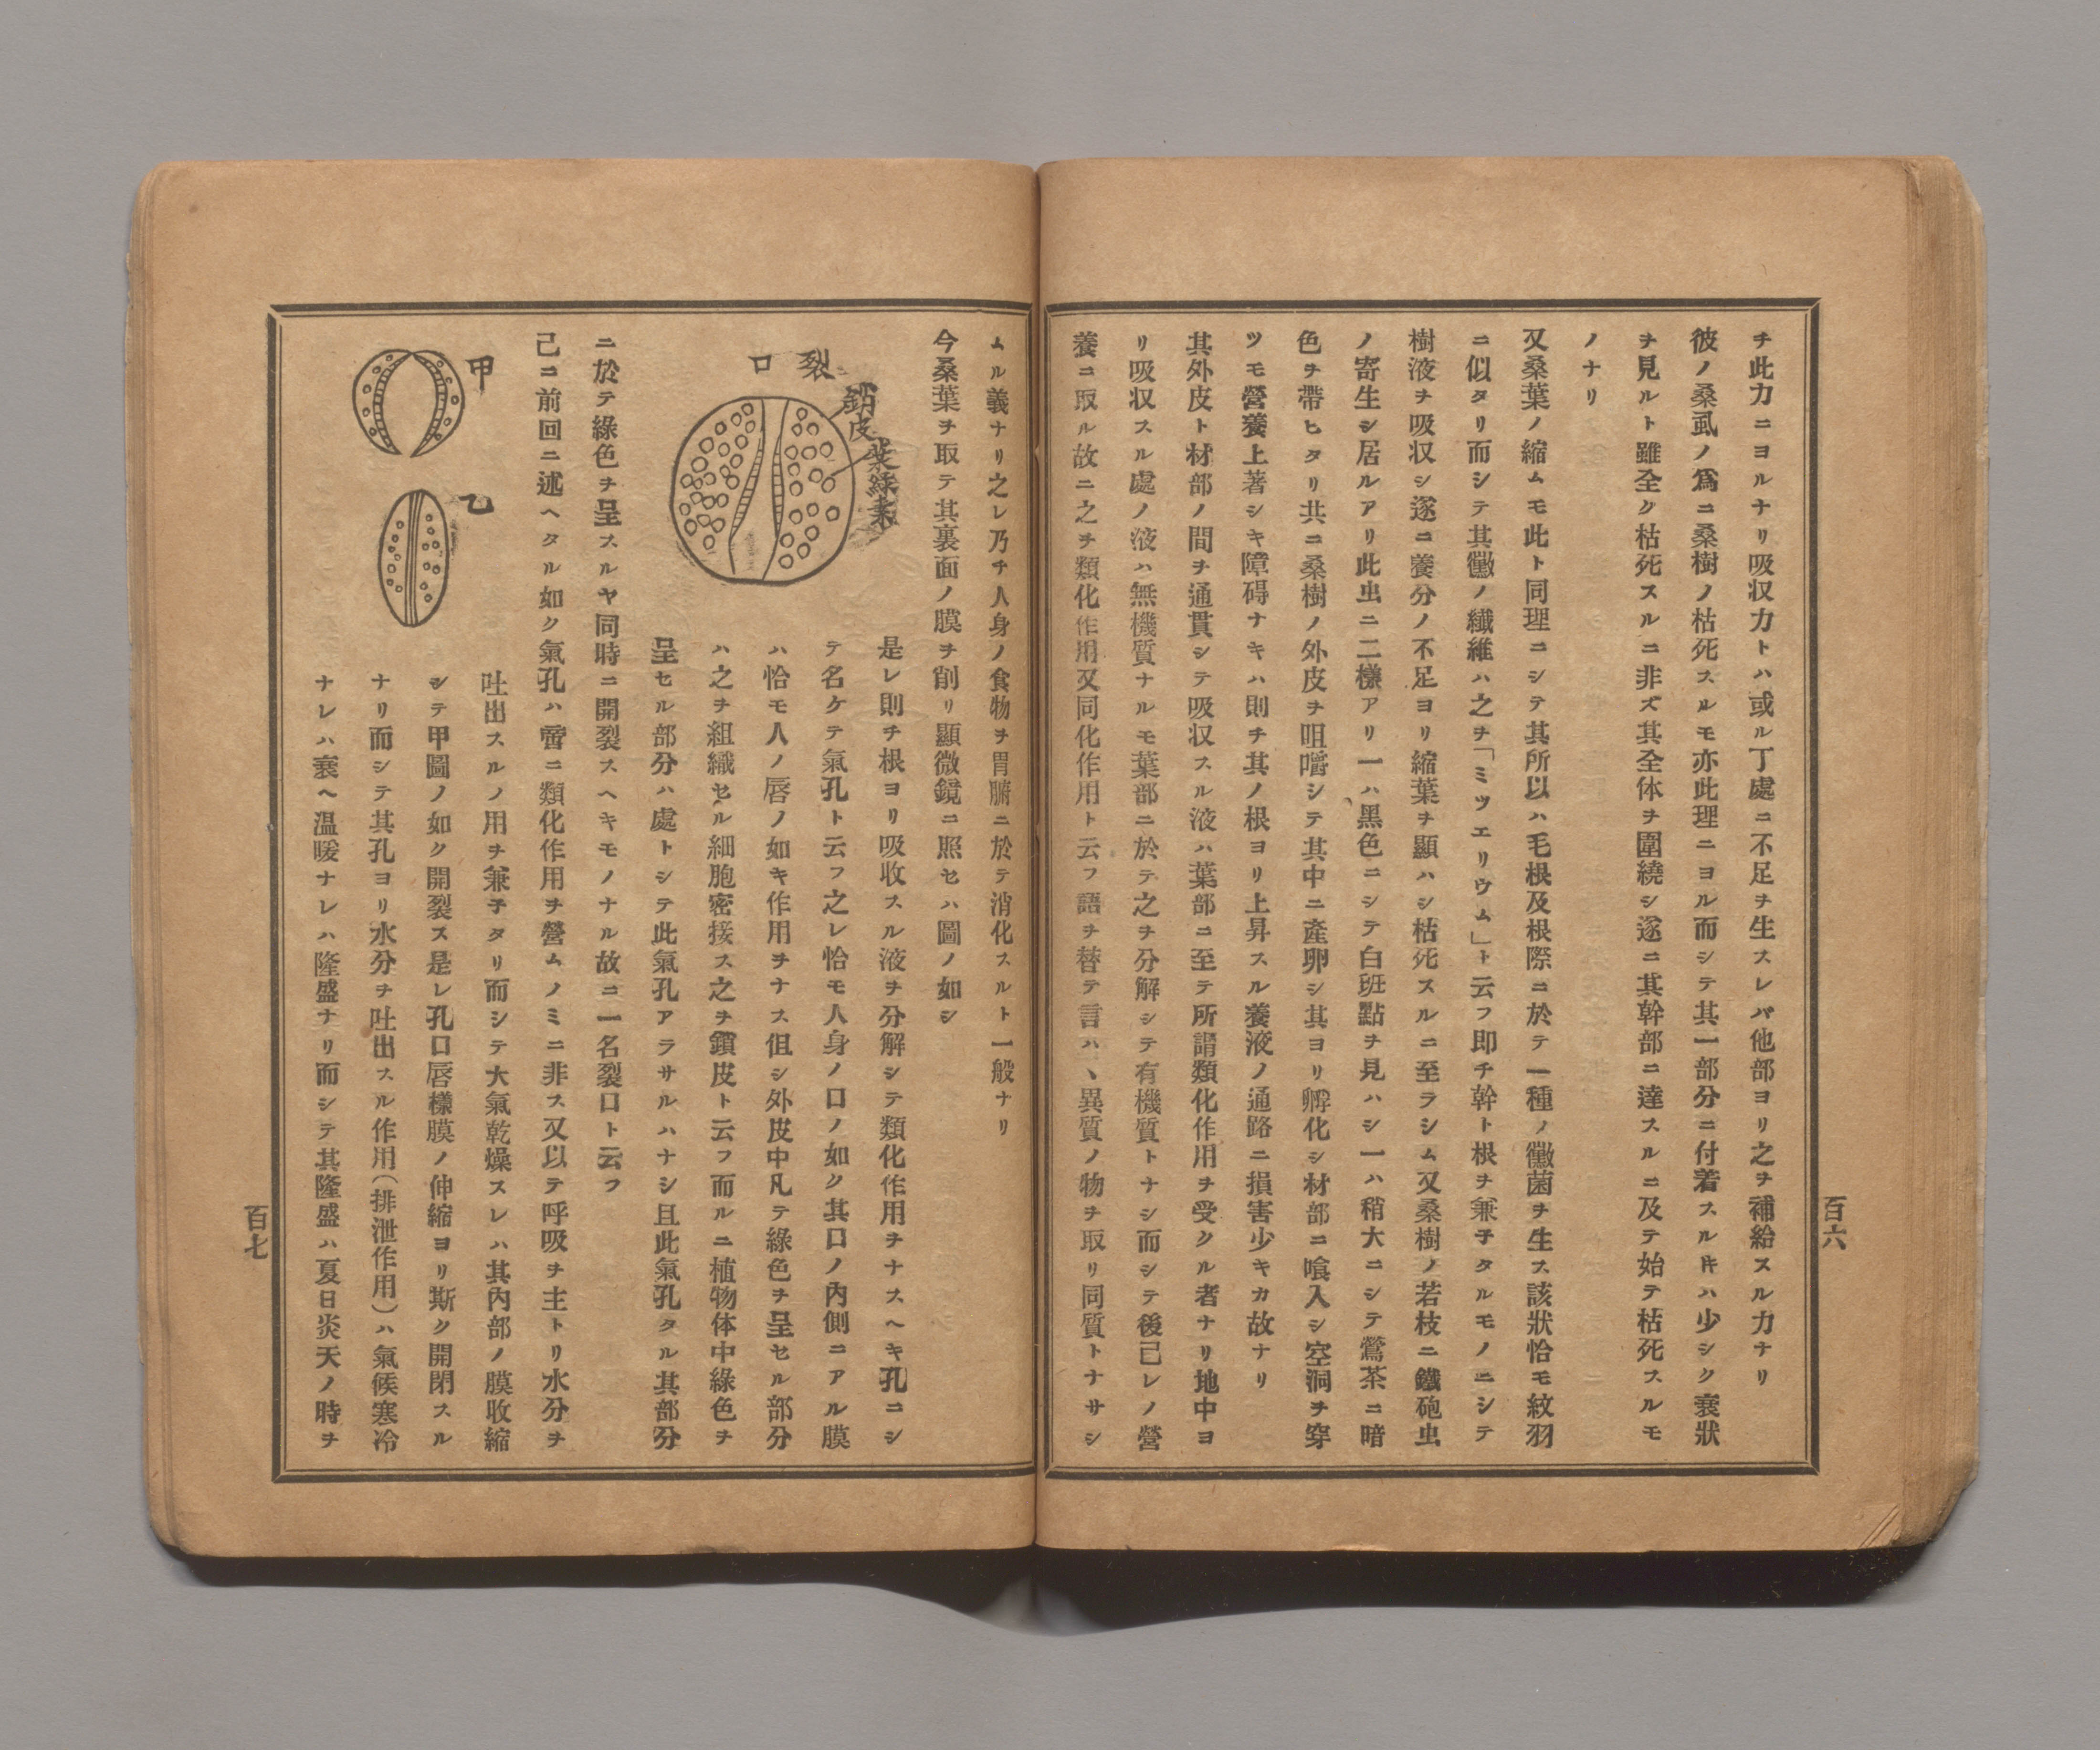 チ此力ニヨルナリ吸収力トハ或ル丁處ニ不足ヲ生スレバ他部ヨリ之ヲ補給スル力ナリ
彼ノ桑虱ノ爲ニ桑樹ノ枯死スルモ亦此理ニヨル而シテ其一部分ニ付着スルヰハ少シク衰狀
ヲ見ルト雖全ク枯死スルニ非ズ其全体ヲ圍繞シ遂ニ其幹部ニ達スルニ及テ始テ枯死スルモ
ノナリ
又桑葉ノ縮ムモ此ト同理ニシテ其所以ハ毛根及根際ニ於テ一種ノ黴菌ヲ生ス該狀恰モ紋羽
ニ似タリ而シテ其黴ノ纖維ハ之ヲ「ミツエリウム」ト云フ即チ幹ト根ヲ兼子タルモノニシテ
樹液ヲ吸収シ遂ニ養分ノ不足ヨリ縮葉ヲ顯ハシ枯死スルニ至ラシム又桑樹ノ若枝ニ鐵砲虫
ノ寄生シ居ルアリ此虫ニ二樣アリ一ハ黑色ニシテ白班點ヲ見ハシ一ハ稍大ニシテ鶯茶ニ暗
色ヲ帶ヒタリ共ニ桑樹ノ外皮ヲ咀嚼シテ其中ニ産卵シ其ヨリ孵化シ材部ニ喰入シ空洞ヲ穿
ツモ營養上著シキ障碍ナキハ則チ其ノ根ヨリ上昇スル養液ノ通路ニ損害少キカ故ナリ
其外皮ト材部ノ間ヲ通貫シテ吸収スル液ハ葉部ニ至テ所謂類化作用ヲ受クル者ナリ地中ヨ
リ吸収スル處ノ液ハ無機質ナルモ葉部ニ於テ之ヲ分解シテ有機質トナシ而シテ後己レノ營
養ニ取ル故ニ之ヲ類化作用又同化作用ト云フ語ヲ替テ言ハヽ異質ノ物ヲ取リ同質トナサシ
百六
ムル義ナリ之レ乃チ人身ノ食物ヲ胃腑ニ於テ消化スルト一般ナリ
今桑葉ヲ取テ其裏面ノ膜ヲ削リ顯微鏡ニ照セハ圖ノ如シ
裂口
鎖皮
葉緑素
是レ則チ根ヨリ吸收スル液ヲ分解シテ類化作用ヲナスヘキ孔ニシ
テ名ケテ氣孔ト云フ之レ恰モ人身ノ口ノ如ク其口ノ內側ニアル膜
ハ恰モ人ノ唇ノ如キ作用ヲナス但シ外皮中凡テ綠色ヲ呈セル部分
ハ之ヲ組織セル細胞密接ス之ヲ鎖皮ト云フ而ルニ植物体中綠色ヲ
呈セル部分ハ處トシテ此氣孔アラサルハナシ且此氣孔タル其部分
ニ於テ綠色ヲ呈スルヤ同時ニ開裂スヘキモノナル故ニ一名裂口ト云フ
己ニ前回ニ述ヘタル如ク氣孔ハ啻ニ類化作用ヲ營ムノミニ非ス又以テ呼吸ヲ主トリ水分ヲ
甲
乙
吐出スルノ用ヲ兼子タリ而シテ大氣乾燥スレハ其內部ノ膜收縮
シテ甲圖ノ如ク開裂ス是レ孔口唇樣膜ノ伸縮ヨリ斯ク開閉スル
ナリ而シテ其孔ヨリ水分ヲ吐出スル作用(排泄作用)ハ氣候寒冷
ナレハ衰ヘ温暖ナレハ隆盛ナリ而シテ其隆盛ハ夏日炎天ノ時ヲ
百七